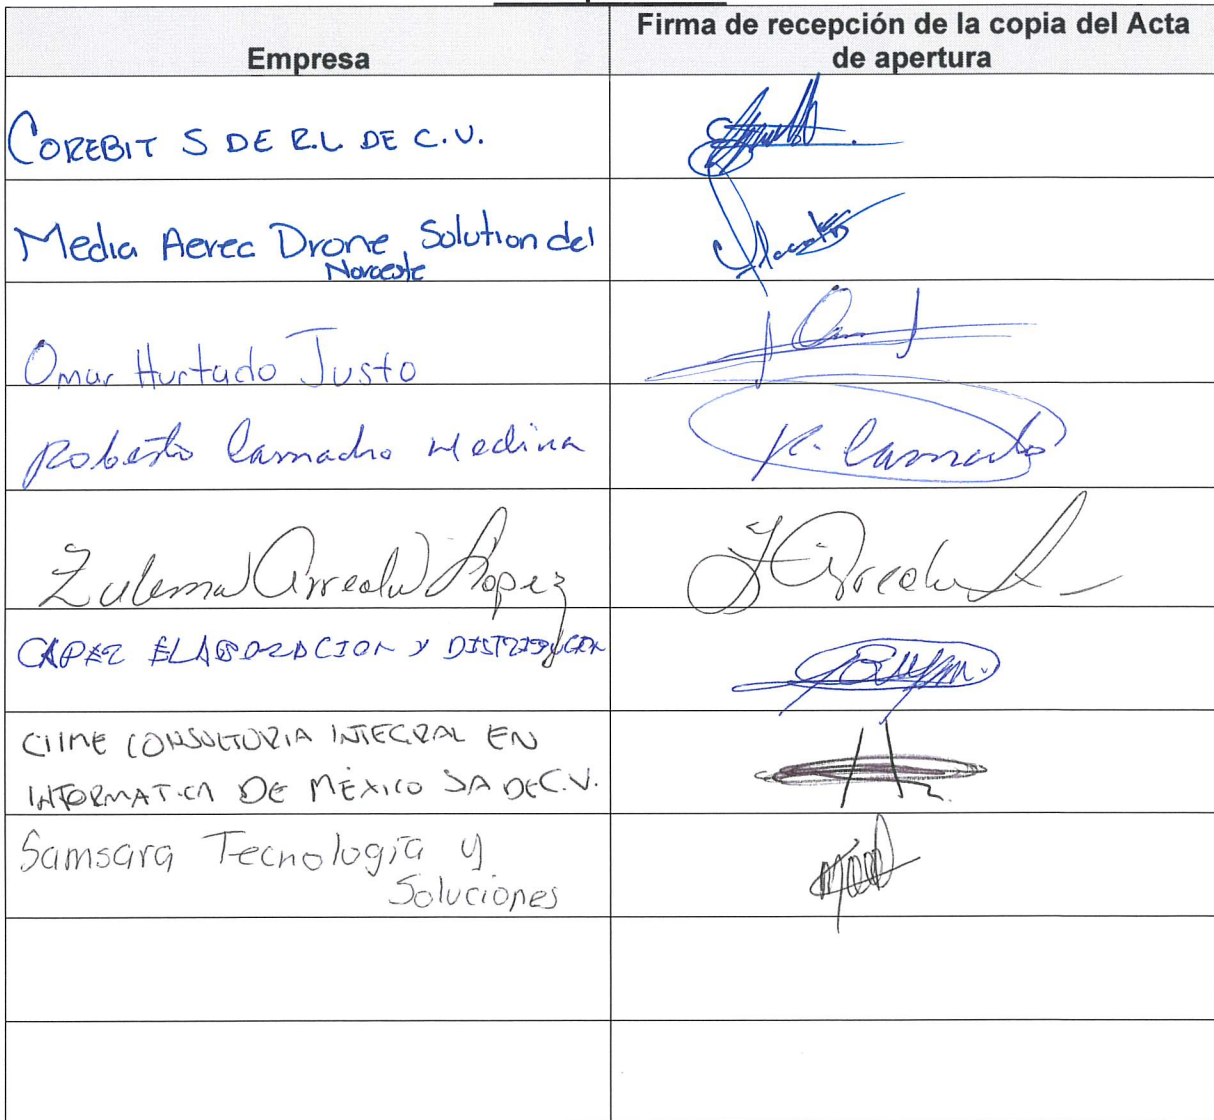 Empresa
Firma de recepción de la copia del Acta
de apertura
COREBIT S DE R.L DE C.V.
Media Aerea Drone Solution del
Noroeste
Omar Hurtado Justo
Roberto Camacho Medina
R. Camacho
Zulema Arreola Lopez
Z Arreola L
ELABORACION Y DISTRIBUCION
CIIME CONSULTORIA INTEGRAL EN
INFORMATICA DE MÉXICO SA DE C.V.
Samsara Tecnología y
Soluciones